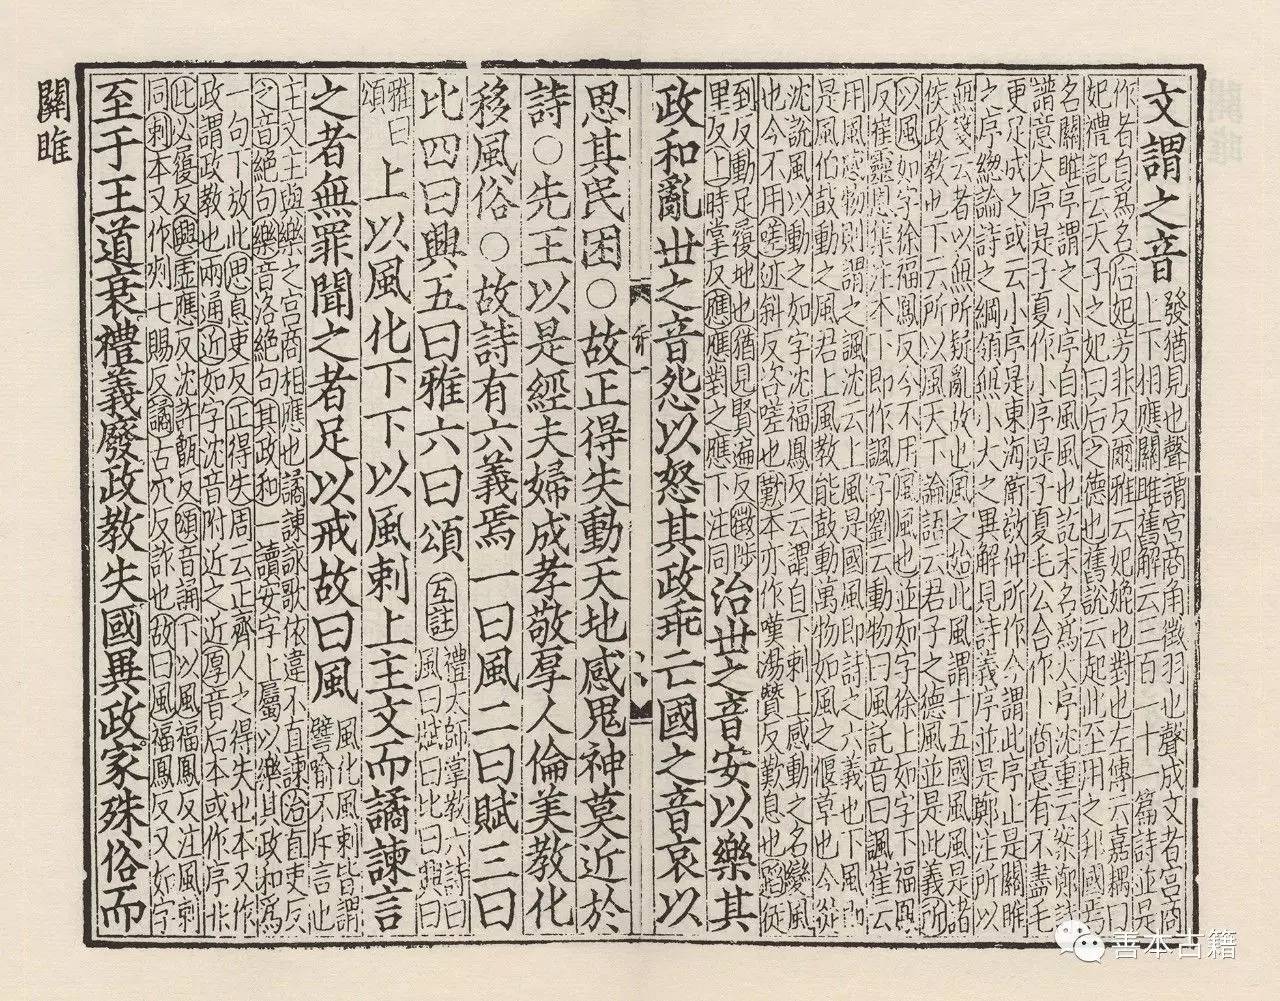 文謂之音
發猶見也聲謂宮商角徵羽也聲成文者宮商
上下相應關雎舊解云三百一十一篇詩並是
作者自爲名后妃芳非反爾雅云妃媲也對也左傳云嘉耦曰
妃禮記云天子之妃曰后之德也舊說云起此至用之邦國焉
名關雎序謂之小序自風風也訖末名爲大序沈重云案鄭詩
譜意大序是子夏作小序是子夏毛公合作卜商意有不盡毛
更足成之或云小序是東海衛敬仲所作今謂此序止是關雎
之序總論詩之綱領無小大之異解見詩義序並是鄭注所以
無箋云者以無所疑亂故也風之始此風謂十五國風風是諸
侯政教也下云所以風天下論語云君子之德風並是此義所
以風如字徐福鳳反今不用風風也並如字徐上如字下福鳳
反崔靈恩集注本下即作諷字劉云動物曰風託音曰諷崔云
用風感物則謂之諷沈云上風是國風即詩之六義也下風即
是風伯鼓動之風君上風教能鼓動萬物如風之偃草也今從
沈說風以動之如字沈福鳳反云謂自下刺上感動之名變風
也今不用嗟迹斜反咨嗟也歎本亦作嘆湯贊反歎息也蹈徒
到反動足履地也猶見賢遍反徵陟
里反上時掌反應應對之應下注同
治世之音安以樂其
政和亂世之音怨以怒其政乖亡國之音哀以
思其民困○故正得失動天地感鬼神莫近於
詩○先王以是經夫婦成孝敬厚人倫美教化
移風俗○故詩有六義焉一曰風二曰賦三曰
比四曰興五曰雅六曰頌
互註
禮大師掌教六詩曰
風曰賦曰比曰興曰
雅曰
頌
上以風化下下以風刺上主文而譎諫言
之者無罪聞之者足以戒故曰風
風化風刺皆謂
譬喻不斥言也
主文主與樂之宮商相應也譎諫詠歌依違不直諫治直吏反
之音絕句樂音洛絕句其政和一讀安字上屬以樂其政和爲
一句下放此思息吏反正得失周云正齊人之得失也本又作
政謂政教也兩通近如字沈音附近之近厚音后本或作序非
比必履反興虛應反沈許甑反頌音誦下以風福鳳反注風刺
同刺本又作刾七賜反譎古穴反詐也故曰風福鳳反又如字
至于王道衰禮義廢政教失國異政家殊俗而
關雎
善本古籍